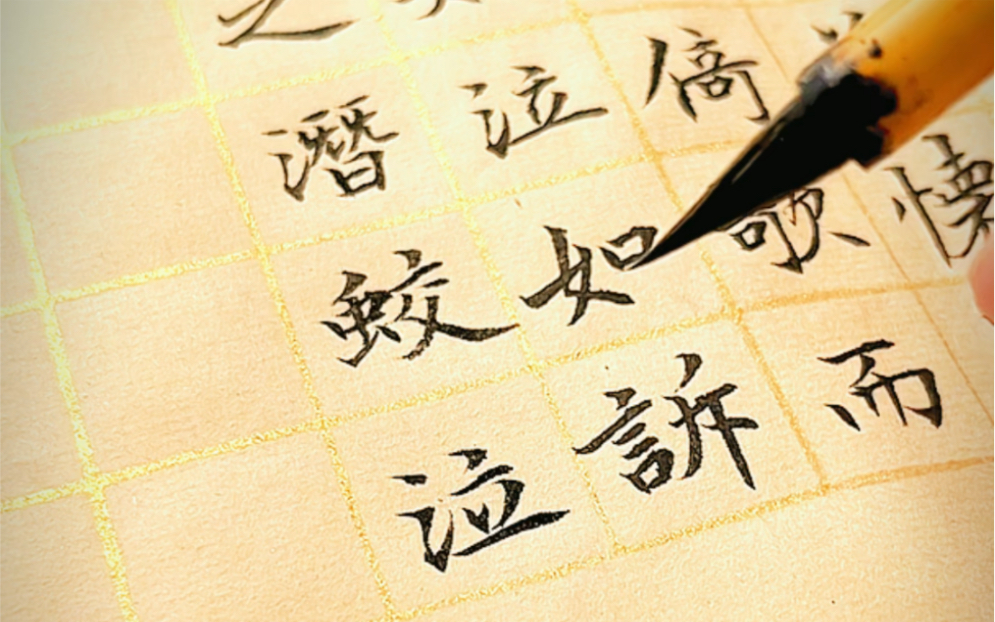 懷
倚歌而
泣如訴
之潛蛟泣